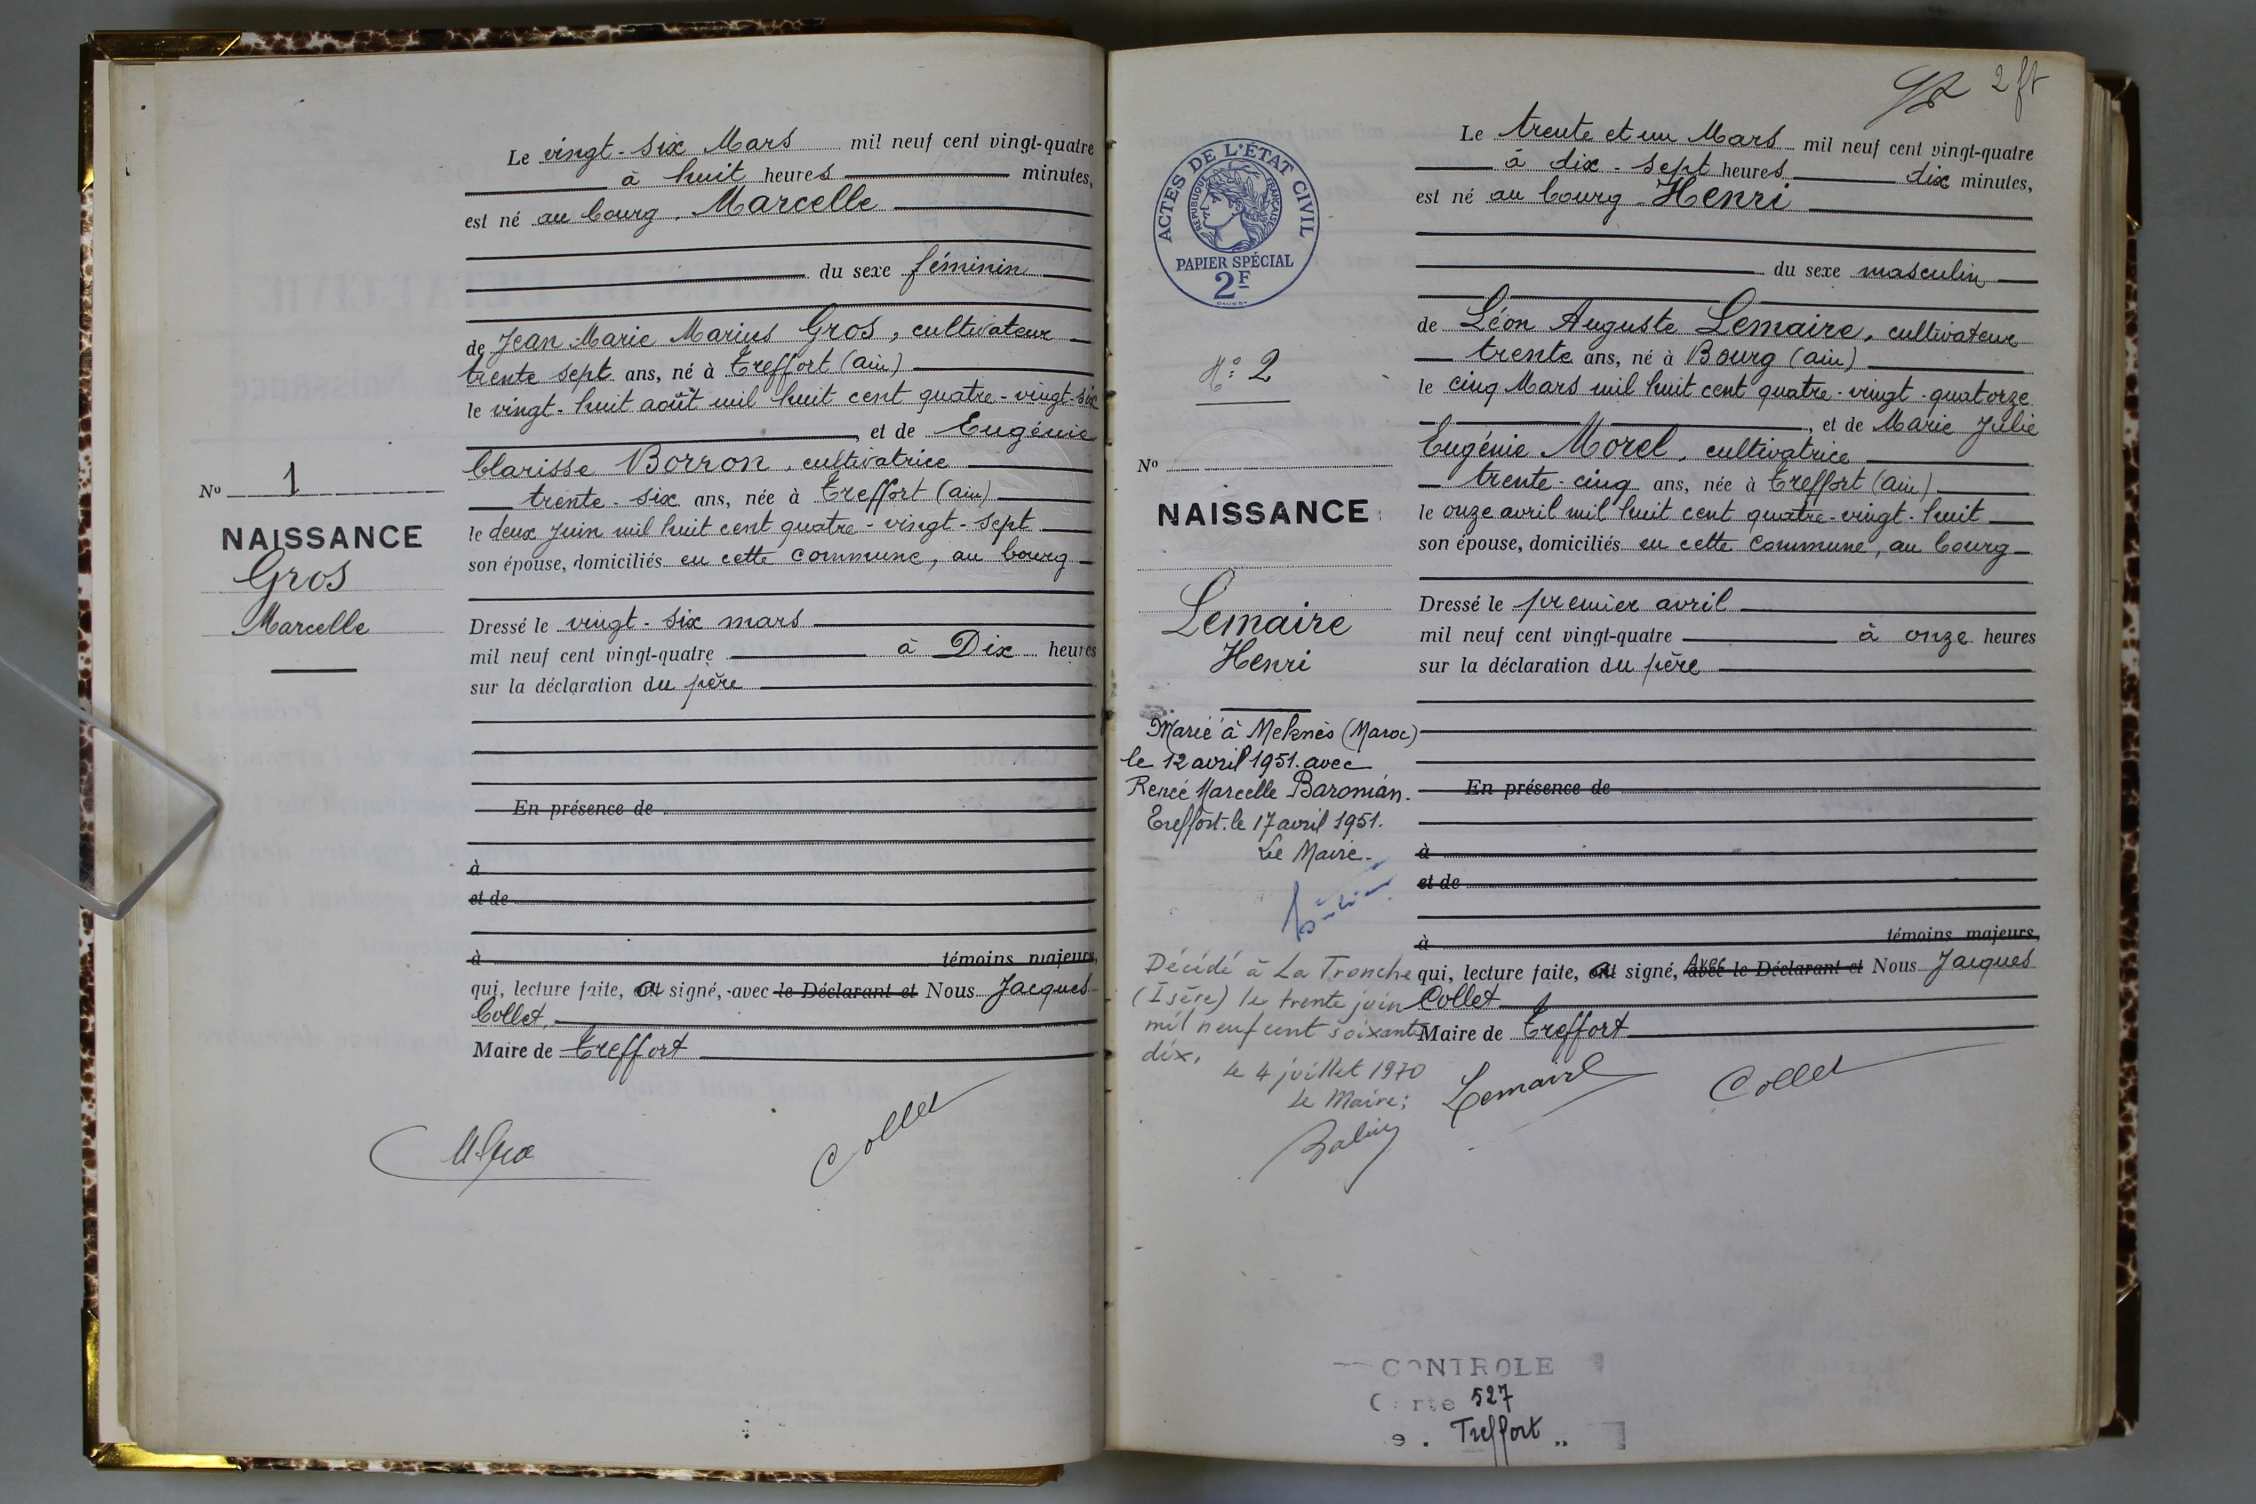 Le vingt-six Mars mil neuf cent vingt-quatre
à huit heures minutes,
est né au bourg. Marcelle
du sexe féminin
de Jean-Marie Marius Gros, cultivateur
trente sept ans, né à Treffort (Ain)
le vingt-huit août mil huit cent quatre-vingt-six
, et de Eugénie
Clarisse Borron, cultivatrice
trente-six ans, née à Treffort (Ain)
le deux Juin mil huit cent quatre-vingt-sept
son épouse, domiciliés en cette commune, au bourg
Dressé le vingt-six mars
mil neuf cent vingt-quatre à Dix heures
sur la déclaration du père
En présence de
à
et de
à témoins majeurs,
qui, lecture faite, a signé, avec le Déclarant et Nous Jacques
Collet,
Maire de Treffort
Collet
No 1
NAISSANCE
Gros
Marcelle
2 ft
ACTES DE L'ÉTAT CIVIL
RÉPUBLIQUE FRANÇAISE
PAPIER SPÉCIAL
2F
No 2
No
NAISSANCE
Lemaire
Henri
Marié à Meknès (Maroc)
le 12 avril 1951 avec
Renée Marcelle Baronian.
Treffort. le 17 avril 1951.
Le Maire.
Décédé à La Tronche
(Isère) le trente juin
mil neuf cent soixante
dix.
le 4 juillet 1970
Le Maire;
Le trente et un Mars mil neuf cent vingt-quatre
à dix-sept heures dix minutes,
est né au bourg-Henri
du sexe masculin
de Léon Auguste Lemaire, cultivateur
trente ans, né à Bourg (Ain)
le cinq Mars mil huit cent quatre-vingt-quatorze
, et de Marie Julie
Eugénie Morel, cultivatrice
trente-cinq ans, née à Treffort (Ain)
le onze avril mil huit cent quatre-vingt-huit
son épouse, domiciliés en cette commune, au bourg
Dressé le premier avril
mil neuf cent vingt-quatre à onze heures
sur la déclaration du père
En présence de
à
et de
à témoins majeurs,
qui, lecture faite, a signé, Avec avec le Déclarant et Nous Jacques
Collet
Maire de Treffort
Lemaire Collet
CONTROLE
Carte 527
Treffort